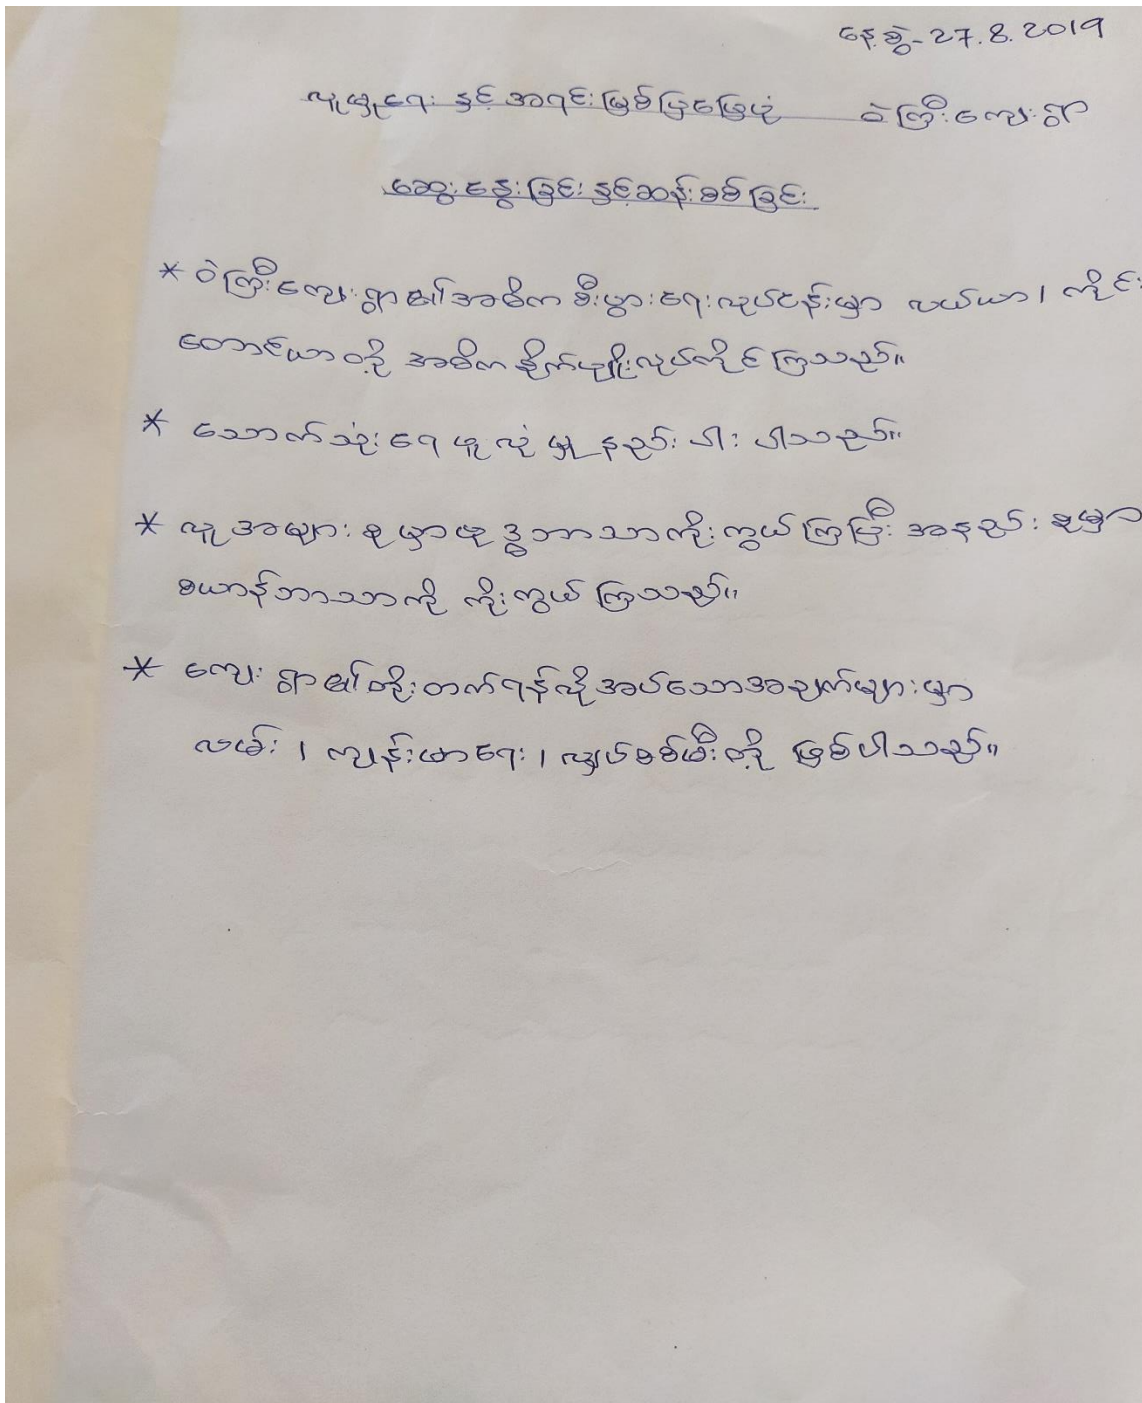 နေ့စွဲ-27.8.2019
လူမှုရေး နှင့် အရင်းမြစ်ပြမြေပုံ ဝဲကြီးကျေးရွာ
ဆွေးနွေးခြင်း နှင့်ဆန်းစစ်ခြင်း
* ဝဲကြီးကျေးရွာ၏အဓိက စီးပွားရေးလုပ်ငန်းမှာ လယ်ယာ၊ ကိုင်း
တောင်ယာတို့ အဓိကစိုက်ပျိုးလုပ်ကိုင်ကြသည်။
* သောက်သုံးရေ ဖူလုံမှု နည်းပါးပါသည်။
* လူအများစုမှာဗုဒ္ဓဘာသာကိုးကွယ်ကြပြီး အနည်းစုမှာ
ခယာန်ဘာသာကို ကိုးကွယ်ကြသည်။
* ကျေးရွာ၏တိုးတက်ရန်လိုအပ်သောအချက်များမှာ
လမ်း၊ ကျန်းမာရေး၊ လျှပ်စစ်မီးတို့ ဖြစ်ပါသည်။